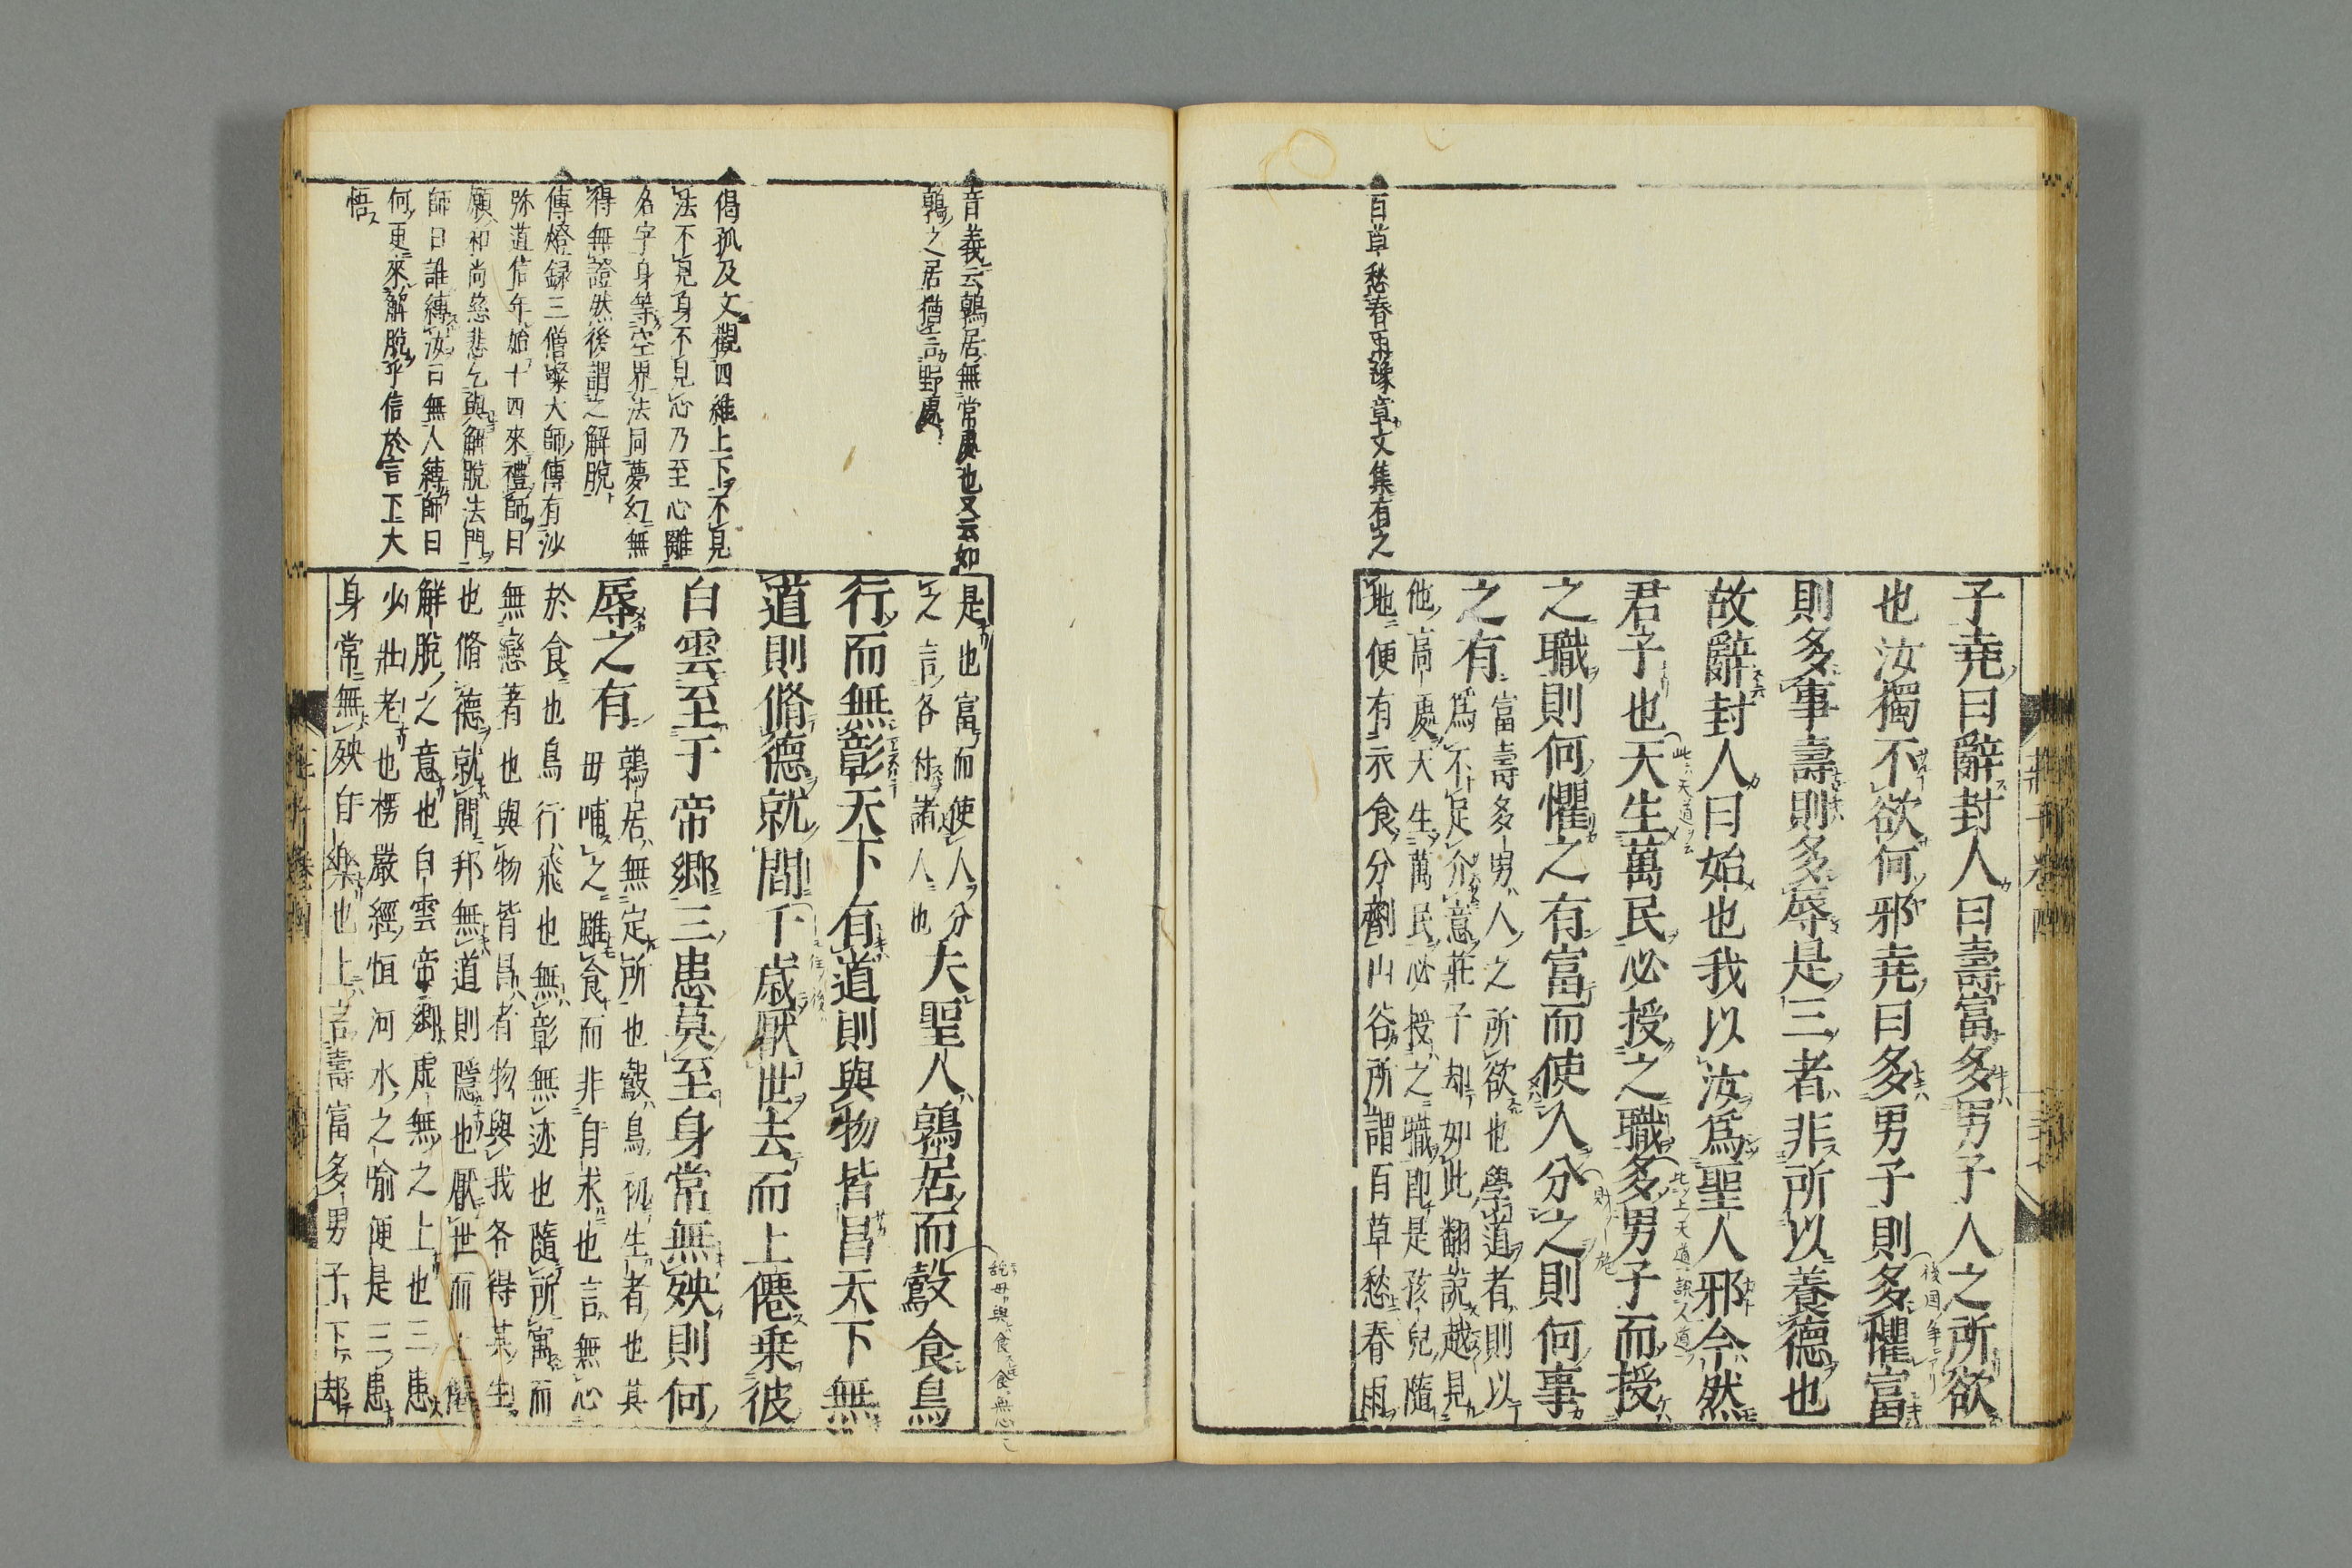 百草愁春雨豫章文集有之
子堯曰辭封人曰壽富多男子人之所欲
也汝獨不欲何邪堯曰多男子則多懼富
則多事壽則多辱是三者非所以養德也
故辭封人曰始也我以汝爲聖人邪今然
君子也天生萬民必授之職多男子而授
之職則何懼之有富而使人分之則何事
之有
富壽多男人之所欲也學道者則以
爲不足介意莊子却如此翻說越見
他高處天生萬民必授之職即是孩兒隨
地便有衣食分劑山谷所謂百草愁春雨
音義云鶉居無常處也又云如
鶉之居猶言野處
偈孤及文觀四維上下不見
法不見身不見心乃至心離
名字身等空界法同夢幻無
得無證然後謂之解脫
傳燈録三僧璨大師傳有沙
弥道信年始十四來禮師曰
願和尚慈悲乞與解脫法門
師曰誰縛汝曰無人縛師曰
何更來解脫乎信於言下大
悟
是也富而使人分
之言各付諸人也
夫聖人鶉居而鷇食鳥
行而無彰天下有道則與物皆昌天下無
道則脩德就間千歲厭世去而上僊乗彼
白雲至于帝郷三患莫至身常無殃則何
辱之有
鶉居無定所也鷇鳥初生者也其
毋哺之雖食而非自求也言無心
於食也鳥行飛也無彰無迹也隨所寓而
無戀著也與物皆昌者物與我各得其生
也脩德就間邦無道則隱也厭世而上僊
解脫之意也白雲帝郷虛無之上也三患
少壯老也楞嚴經恒河水之喻便是三患
身常無殃自樂也上言壽富多男子下却
莊子卷四